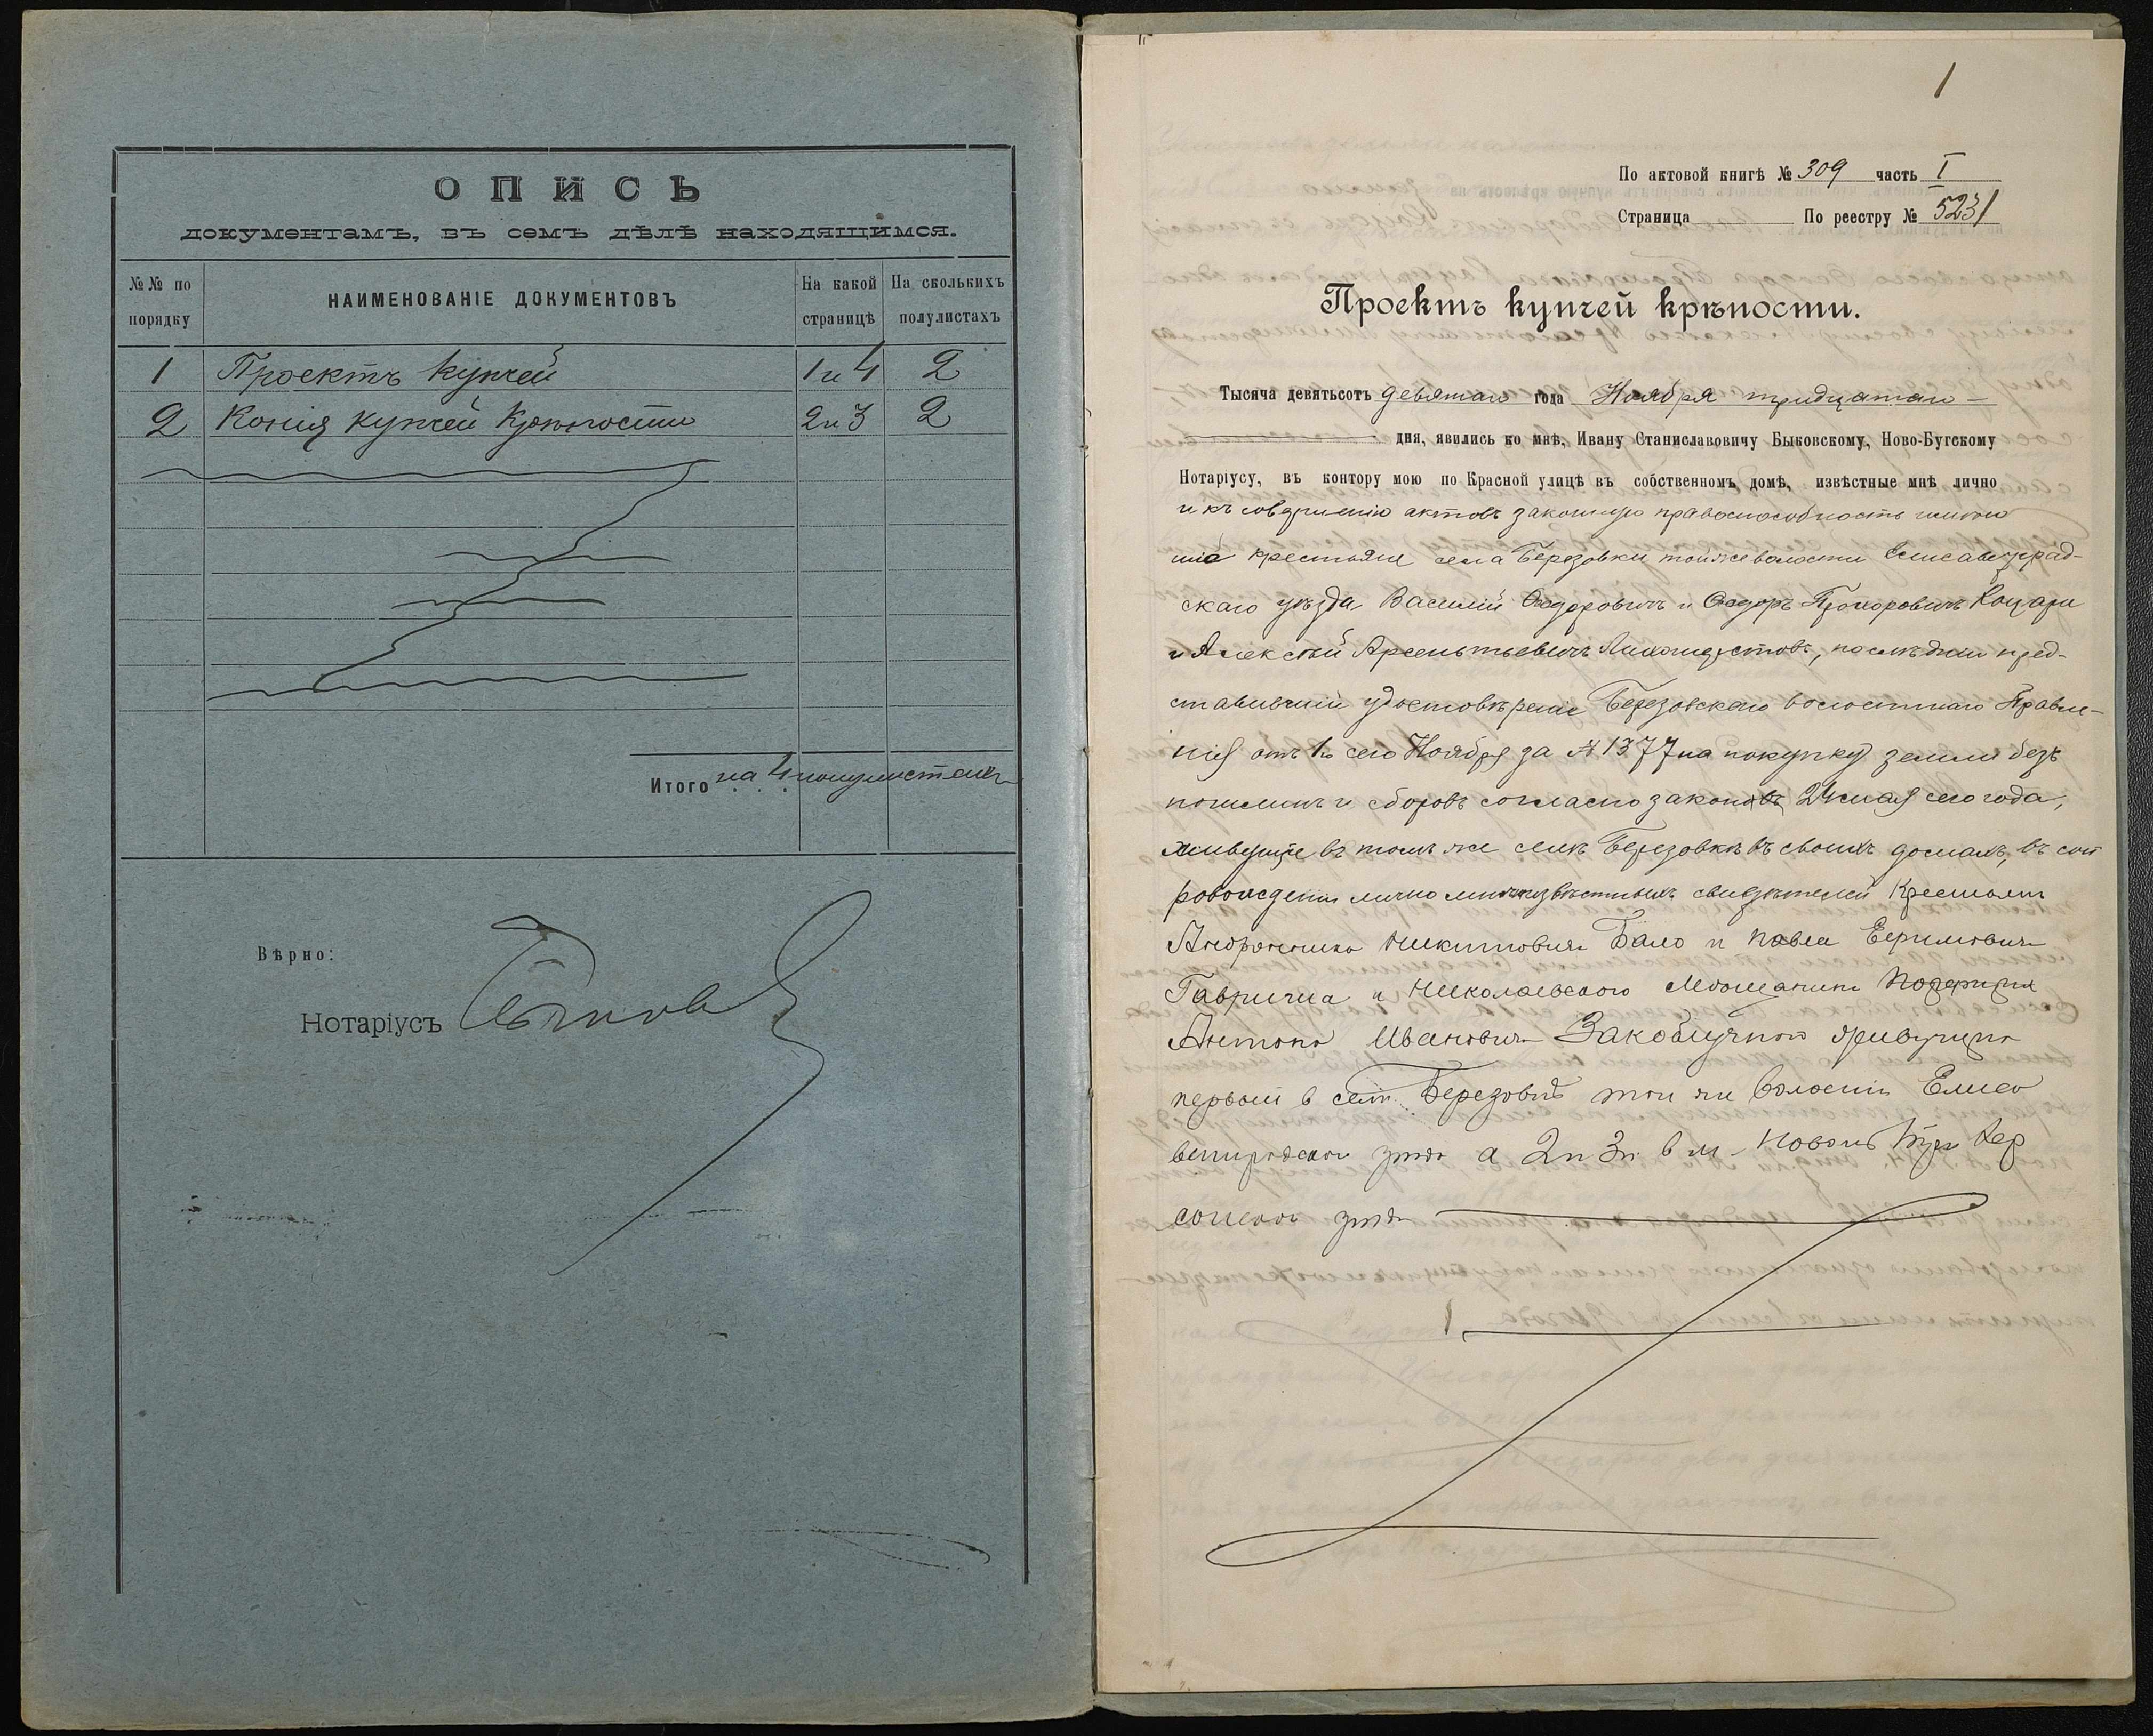 ОПИСЬ
документамъ, въ семъ дѣлѣ находящимся.
№№ по порядку
НАИМЕНОВАНІЕ ДОКУМЕНТОВЪ
На какой страницѣ
На сколькихъ полулистахъ
1 Проектъ купчей 1 и 4 2
2 Копія купчей крѣпости 2 и 3 2
Итого на 4 полулистахъ
Вѣрно:
Нотаріусъ
1
По актовой книгѣ № 309 часть I
Страница По реестру № 5231
Проектъ купчей крѣпости.
Тысяча девятьсотъ девятаго года Ноября тридцатаго
дня, явились ко мнѣ, Ивану Станиславовичу Быковскому, Ново-Бугскому
Нотаріусу, въ контору мою по Красной улицѣ въ собственномъ домѣ, извѣстные мнѣ лично
и къ совершенію актовъ законную правоспособность имѣю
щіе крестьяне села Березовки той же волости Елисаветград-
скаго уѣзда Василій Ѳедоровичъ и Ѳедоръ Прохоровичъ Коцари
и Алексѣй Арсентьевичъ, послѣдній пред-
ставившій удостовѣреніе Березовскаго волостнаго Правле-
нія отъ сего Ноября за № 1377 на покупку земли безъ
пошлинъ и сборовъ согласно закона 24 мая сего года,
живущіе въ томъ же селѣ Березовкѣ въ своихъ домахъ, въ соп
ровожденіи лично мнѣ извѣстныхъ свидѣтелей Крестьянъ
Андроника Никитовича Бало и Павла Ефимовича
Гаврича и Николаевскаго Мѣщанина
Антона Ивановича живущихъ
первый в селѣ Березовкѣ той же волости Елиса
ветградскаго уѣзда а 2й и 3й в м. Новомъ Бугѣ Хер
сонскаго уѣзда